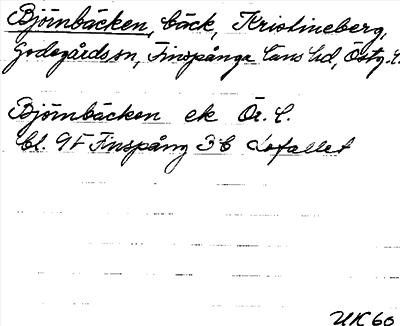 Björnbäcken, bäck, Kristineberg,
Godegårds sn, Finspånga läns hd, Östg. l.
Björnbäcken ek Ör. l.
bl. 9F Finspång 3b Lofallet
UK 60